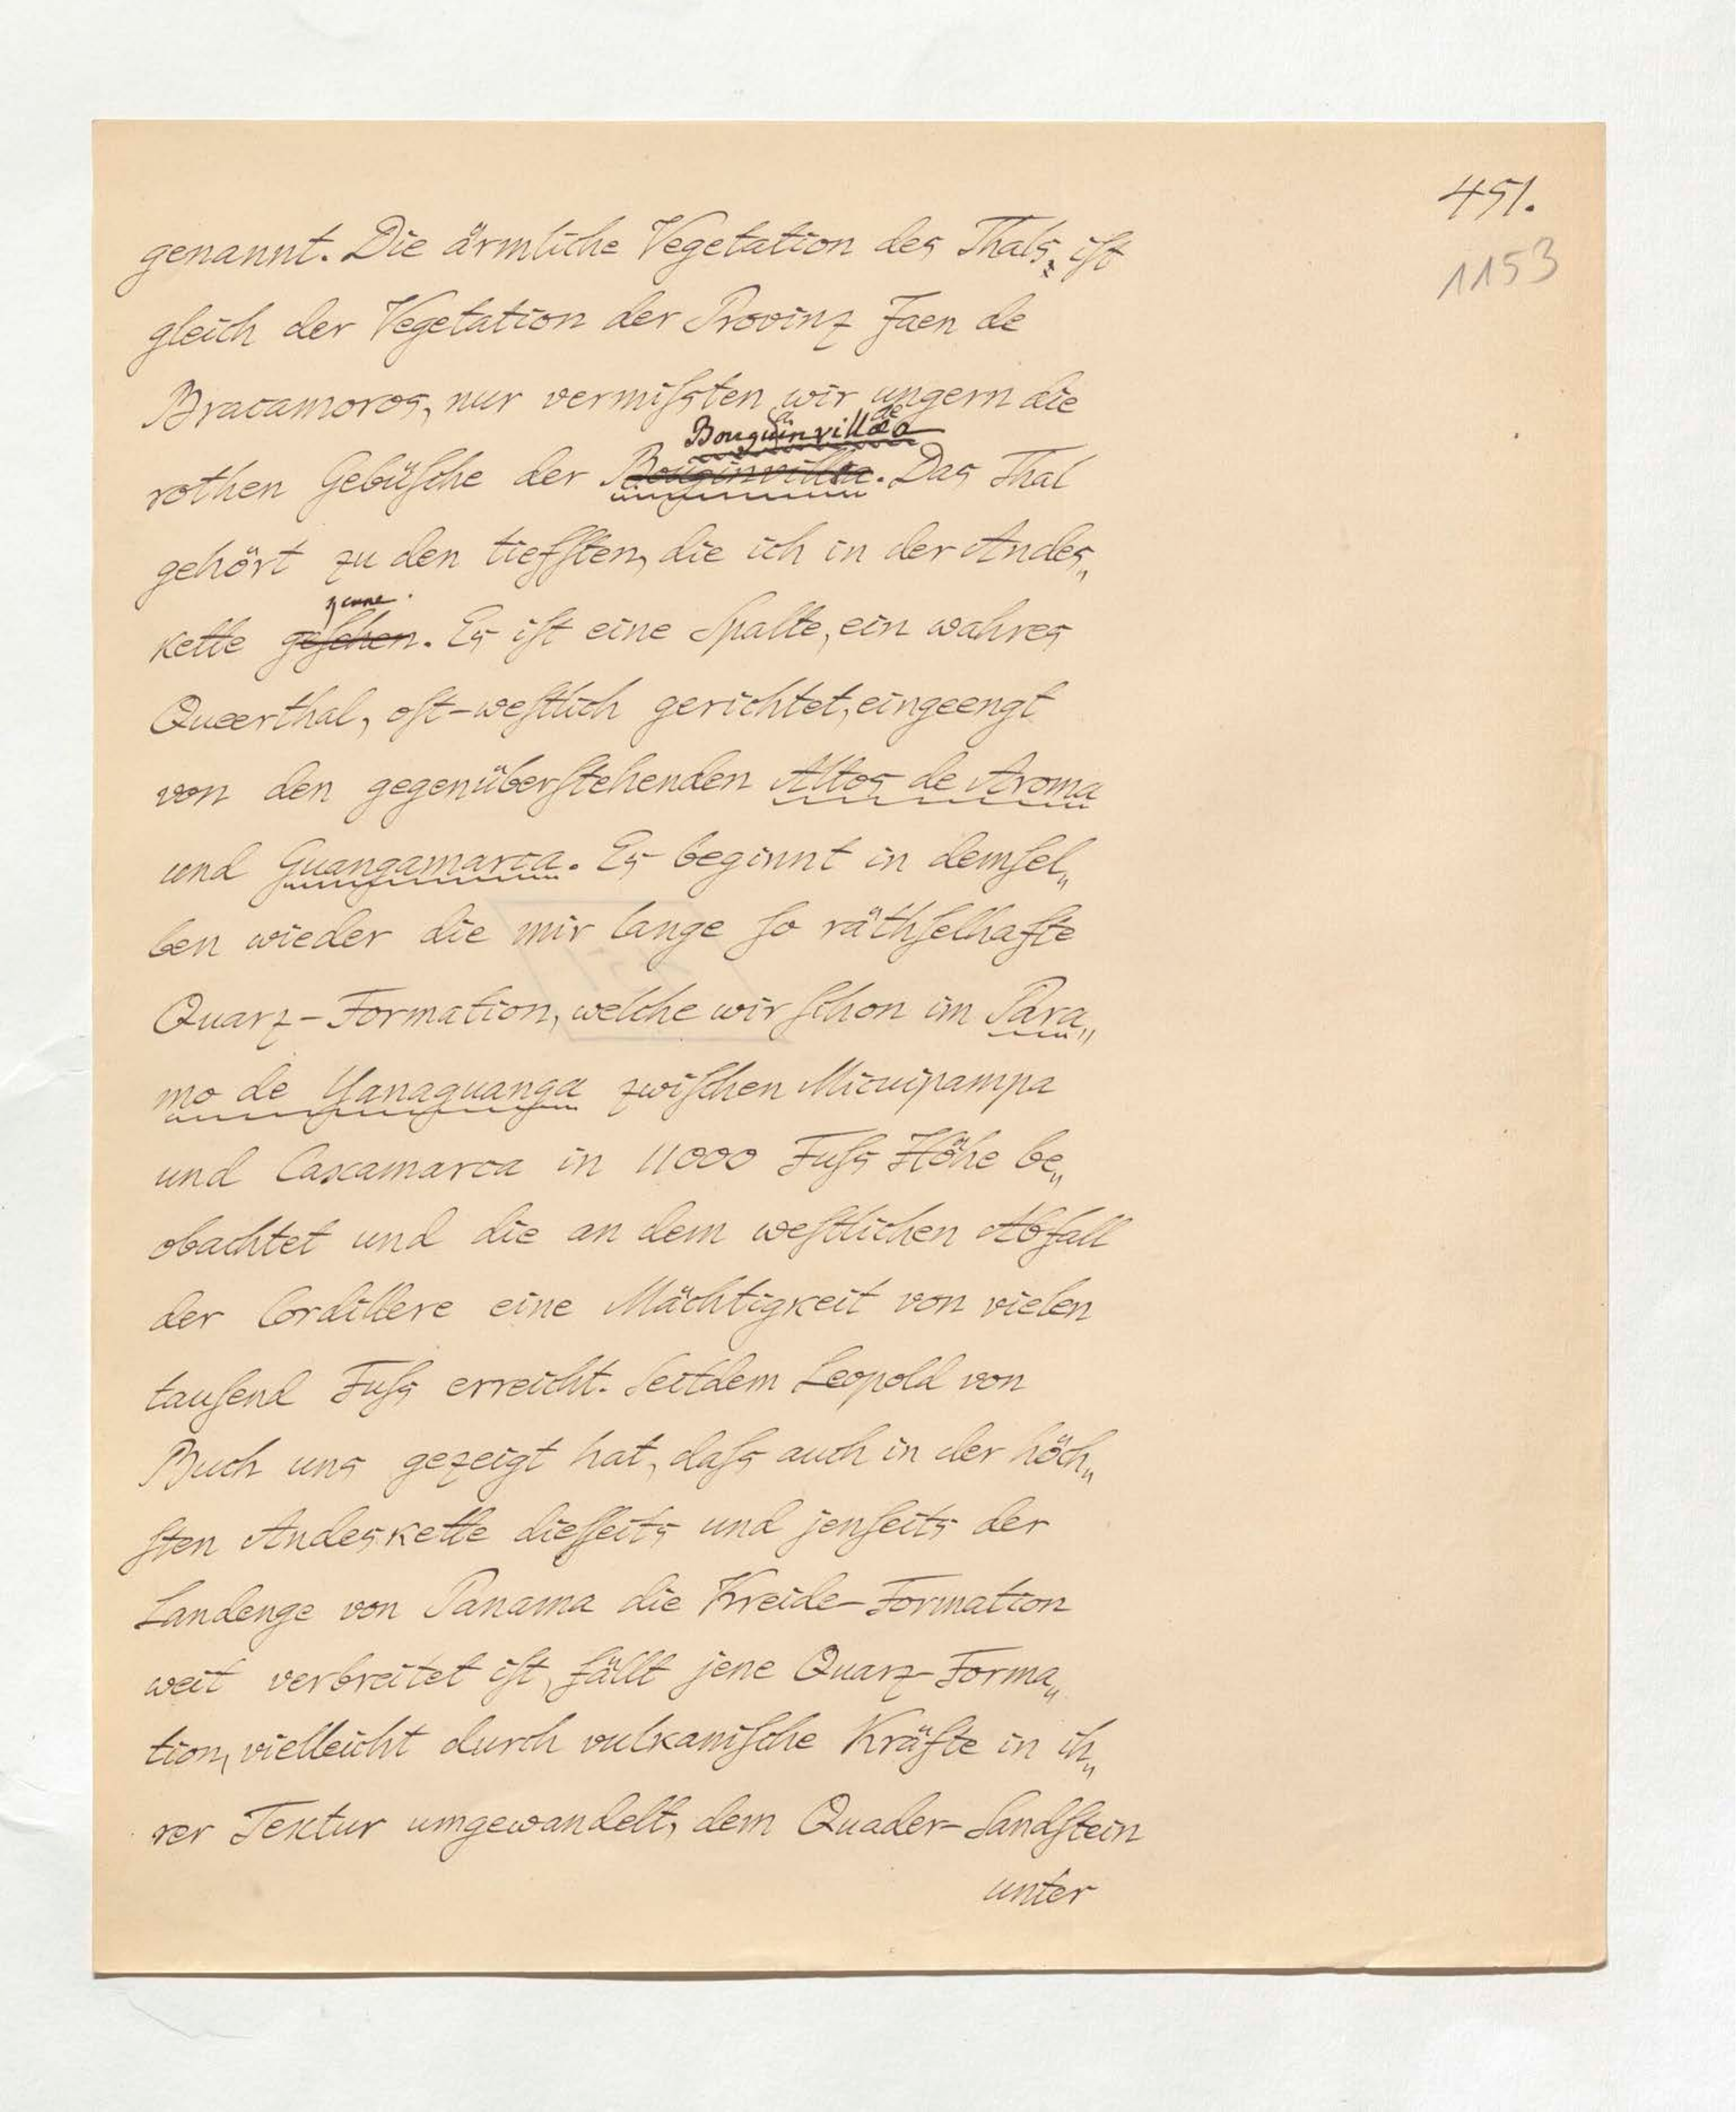 451.
1153
genannt. Die ärmliche Vegetation des Thals, ist
gleich der Vegetation der Provinz Jaen de
Bracamoros, nur vermißten wir ungern die
rothen Gebüsche der Bouginvillea. Das Thal
gehört zu den tiefsten, die ich in der Andes„
kette gesehen. Es ist eine Spalte, ein wahres
Queerthal, ost-westlich gerichtet, eingeengt
von den gegenüberstehenden Altos de Aroma
und Guangamarca. Es beginnt in demsel„
ben wieder die mir lange so räthselhafte
Quarz-Formation, welche wir schon im Para„
mo de Yanaguanga zwischen Micuipampa
und Caxamarca in 11000 Fuss Höhe be„
obachtet und die an dem westlichen Abfall
der Cordillere eine Mächtigkeit von vielen
tausend Fuss erreicht. Seitdem Leopold von
Buch uns gezeigt hat, dass auch in der höch„
sten Andeskette diesseits und jenseits der
Landenge von Panama die Kreide-Formation
weit verbreitet ist, fällt jene Quarz-Forma„
tion, vielleicht durch vulkanische Kräfte in ih„
rer Textur umgewandelt, dem Quader-Sandstein
unter